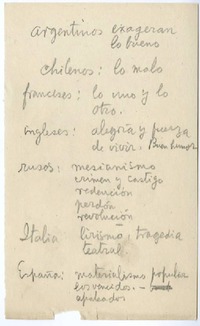 argentinos exageran
lo bueno
chilenos: lo malo
franceses: lo uno y lo
otro.
ingleses: alegría y
de vivir. Buen humor
rusos: mesianismo
crimen y castigo
redención
perdón
revolución
Italia lirismo, tragedia
teatral.
España: materialismo popular
apaleados